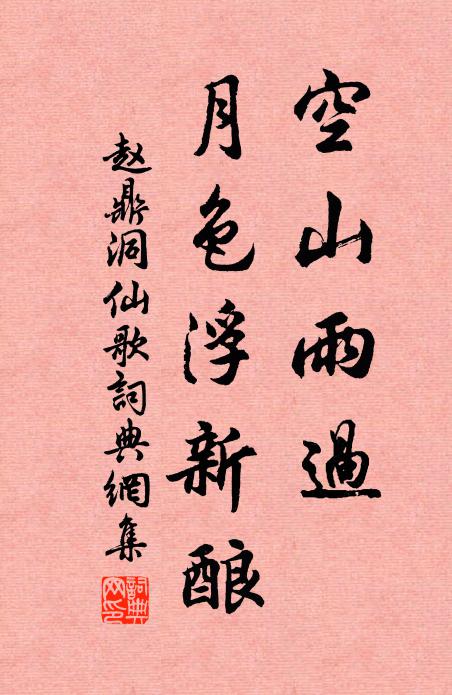 空山雨過
月色浮新酿
赵鼎洞仙歌詞典網集
詞典網印